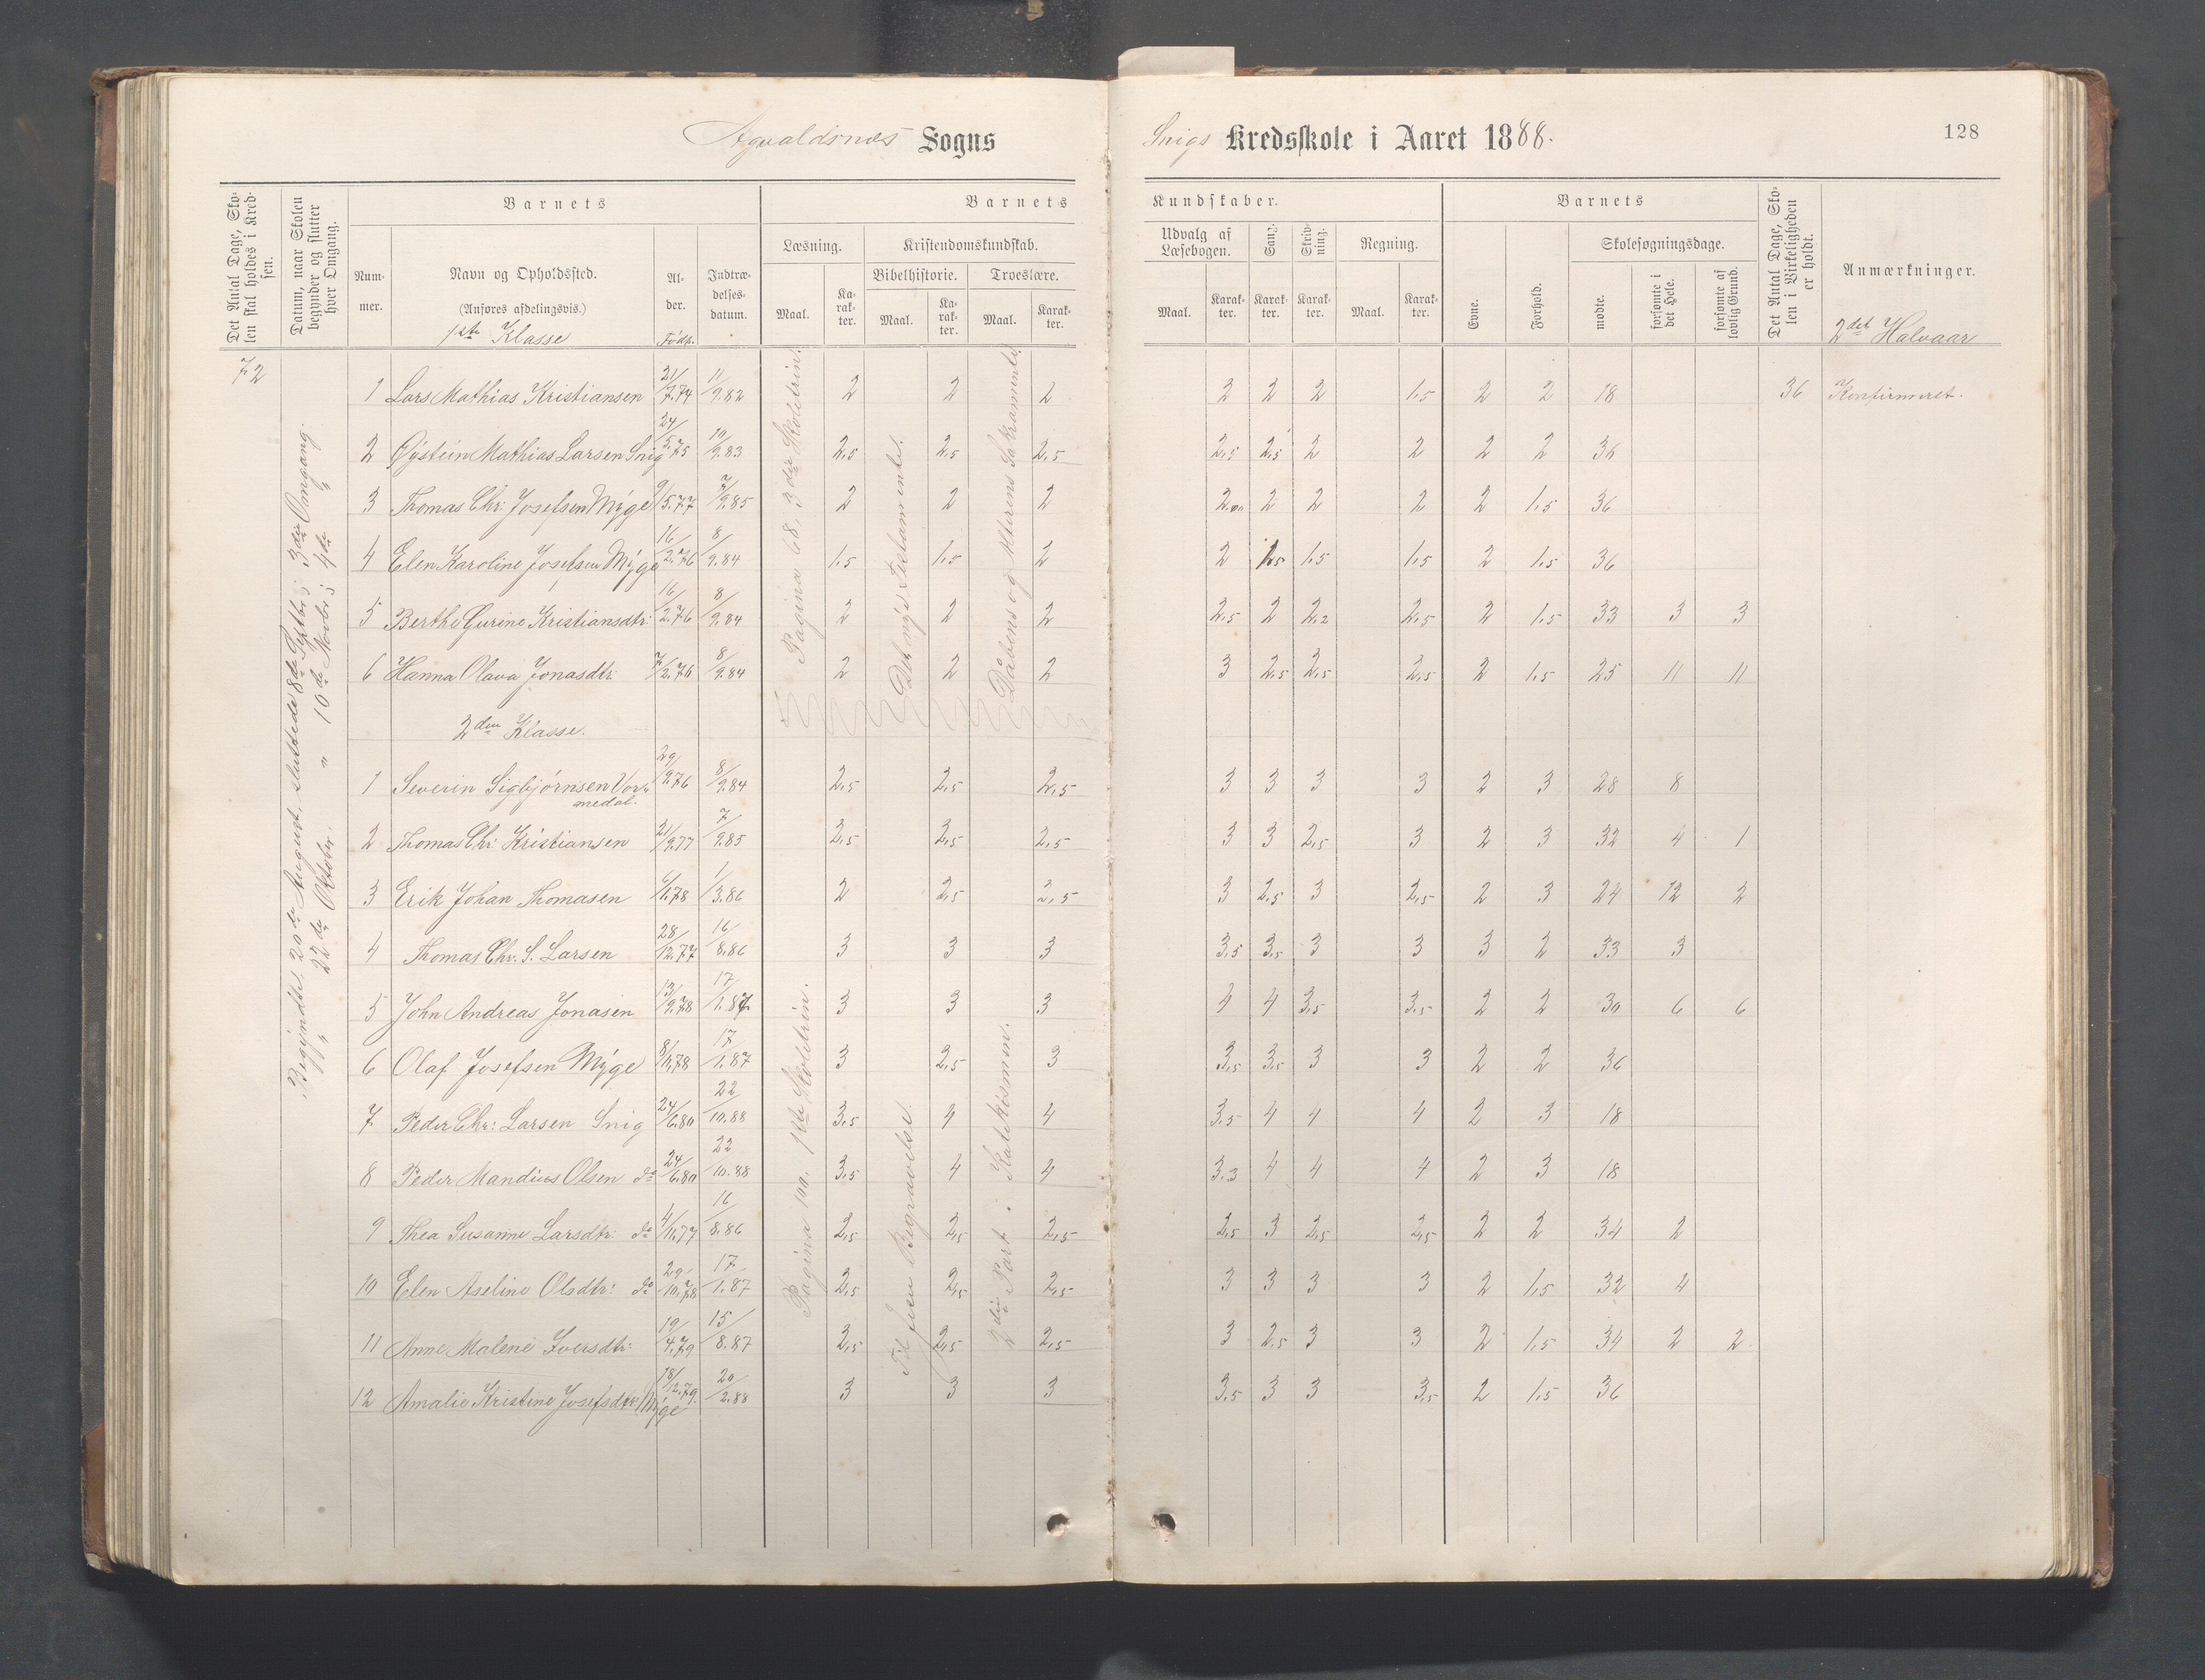 Agvaldsnæs Sogns
Snigs Kredsskole i Aaret 1888.
128
Det Antal Dage, Skolen skal holdes i Kredsen.
Datum, naar Skolen begynder og slutter hver Omgang.
Barnets
Barnets
Kundskaber.
Barnets
Det Antal Dage, Skolen i Virkeligheden er holdt.
Anmærkninger.
Nummer.
Navn og Opholdssted.
(Anføres afdelingsvis.)
Alder.
Indtrædelsesdatum.
Læsning.
Kristendomskundskab.
Bibelhistorie.
Troeslære.
Maal.
Karakter.
Maal.
Karakter.
Maal.
Karakter.
Udvalg af Læsebogen.
Sang.
Skrivning.
Regning.
Maal.
Karakter.
Karakter.
Karakter.
Maal.
Karakter.
Evne.
Forhold.
Skolesøgningsdage.
mødte.
forsømte i det Hele.
forsømte af lovlig Grund.
1ste Klasse
Födt.
2det Halvaar
72
Begyndte 20de August, sluttede 8de Septbr; 3die Omgang.
" 22de Oktober. " 10de Novbr; 4de "
Pagina 68, 3die Skoletrin.
Det nye Testamente.
Dåbens og Alterens Sakramente.
1 Lars Mathias Kristiansen 21/7.74 11/9.82 2 2 2 3 2 2 1,5 2 2 18 36 Konfirmeret.
2 Øystein Mathias Larsen Snig 24/5.75 10/9.83 2,5 2,5 2,5 2,5 2,5 2 2 2 2 36
3 Thomas Chr. Josefsen Myge 9/5.77 7/9.85 2 2 2 2 2 2 2 1,5 36
4 Elen Karoline Josefsen Myge 16/2.76 8/9.84 1,5 1,5 2 2 1,5 1,5 1,5 2 1,5 36
5 Berthe Gurine Kristiansdtr: 16/2.76 8/9.84 2 2 2 2,5 2 2,2 2,5 2 1,5 33 3 3
6 Hanna Olava Jonasdtr 7/2.76 8/9.84 2 2 2 3 2,5 2,5 2,5 2 1,5 25 11 11
2den Klasse.
Pagina 100, 1ste Skoletrin.
Til Jesu Begravelse.
2den Part i Katekismen.
1 Severin Sigbjørnsen Vormedal. 29/9.76 8/9.84 2,5 2,5 2,5 3 3 3 3 2 3 28 8
2 Thomas Chr. Kristiansen 21/9.77 7/9.85 2,5 2,5 2,5 3 3 2,5 3 2 3 32 4 1
3 Erik Johan Thomasen 6/1.78 1/3.86 2 2,5 2,5 3 2,5 3 2,5 2 3 24 12 2
4 Thomas Chr. S. Larsen 28/12.77 16/8.86 3 3 3 3,5 3,5 3 3 3 2 33 3
5 John Andreas Jonasen 13/9.78 17/1.87 3 3 3 4 4 3,5 3,5 2 2 30 6 6
6 Olaf Josefsen Myge 8/11.78 17/1.87 3 2,5 3 3,5 3,5 3 3 2 2 36
7 Peder Chr: Larsen Snig 24/6.80 22/10.88 3,5 4 4 3,5 4 4 4 2 3 18
8 Peder Mandius Olsen do 24/6.80 22/10.88 3,5 4 4 3,3 4 4 4 2 3 18
9 Thea Susanne Larsdtr: do 4/11.77 16/8.86 2,5 2,5 2,5 2,5 3 2,5 2,5 2 2 34 2
10 Elen Aseline Olsdtr: do 29/10.78 17/1.87 2,5 2,5 2,5 3 3 3 3 2 1,5 32 4
11 Anne Malene Iversdtr: 19/4.79 15/8.87 2,5 2,5 2,5 3 2,5 3 3 2 1,5 34 2 2
12 Amalie Kristine Josefsdtr. Myge 18/12.79. 20/2.88 3 3 3 3,5 3 3 3,5 2 1,5 36